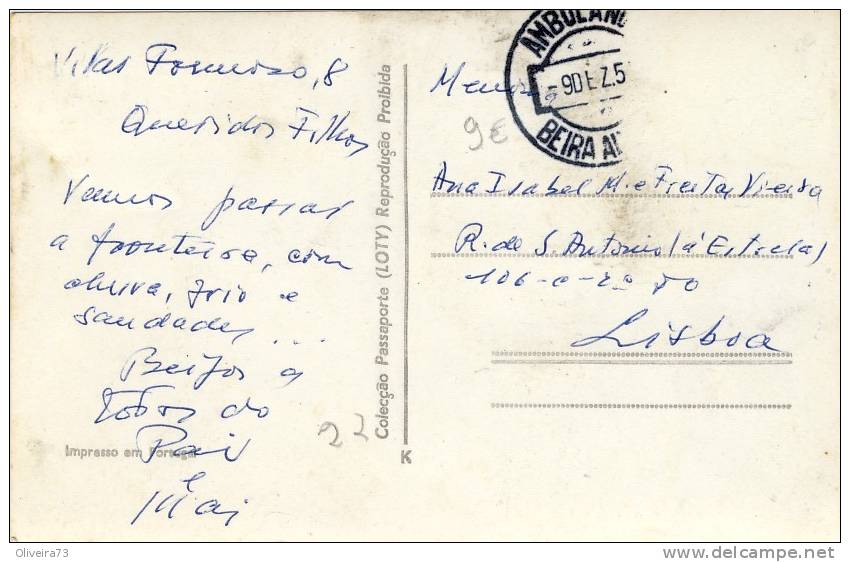 Vilar Formoso, 8
Queridos Filhos
Vamos passar
a fronteira, com
chuva, frio e
saudades...
Beijos a
todos do
Pai
e
Mai
Impresso em Portugal
22
Colecção Passaporte (LOTY) Reprodução Proibida
K
AMBULAN
-9DEZ.5
BEIRA A
9€
Ana Isabel M. e Freitas Vieira
R. de S. Antonio (á Estrela)
106-c-2º DO
Lisboa
Oliveira73
delcampe.net